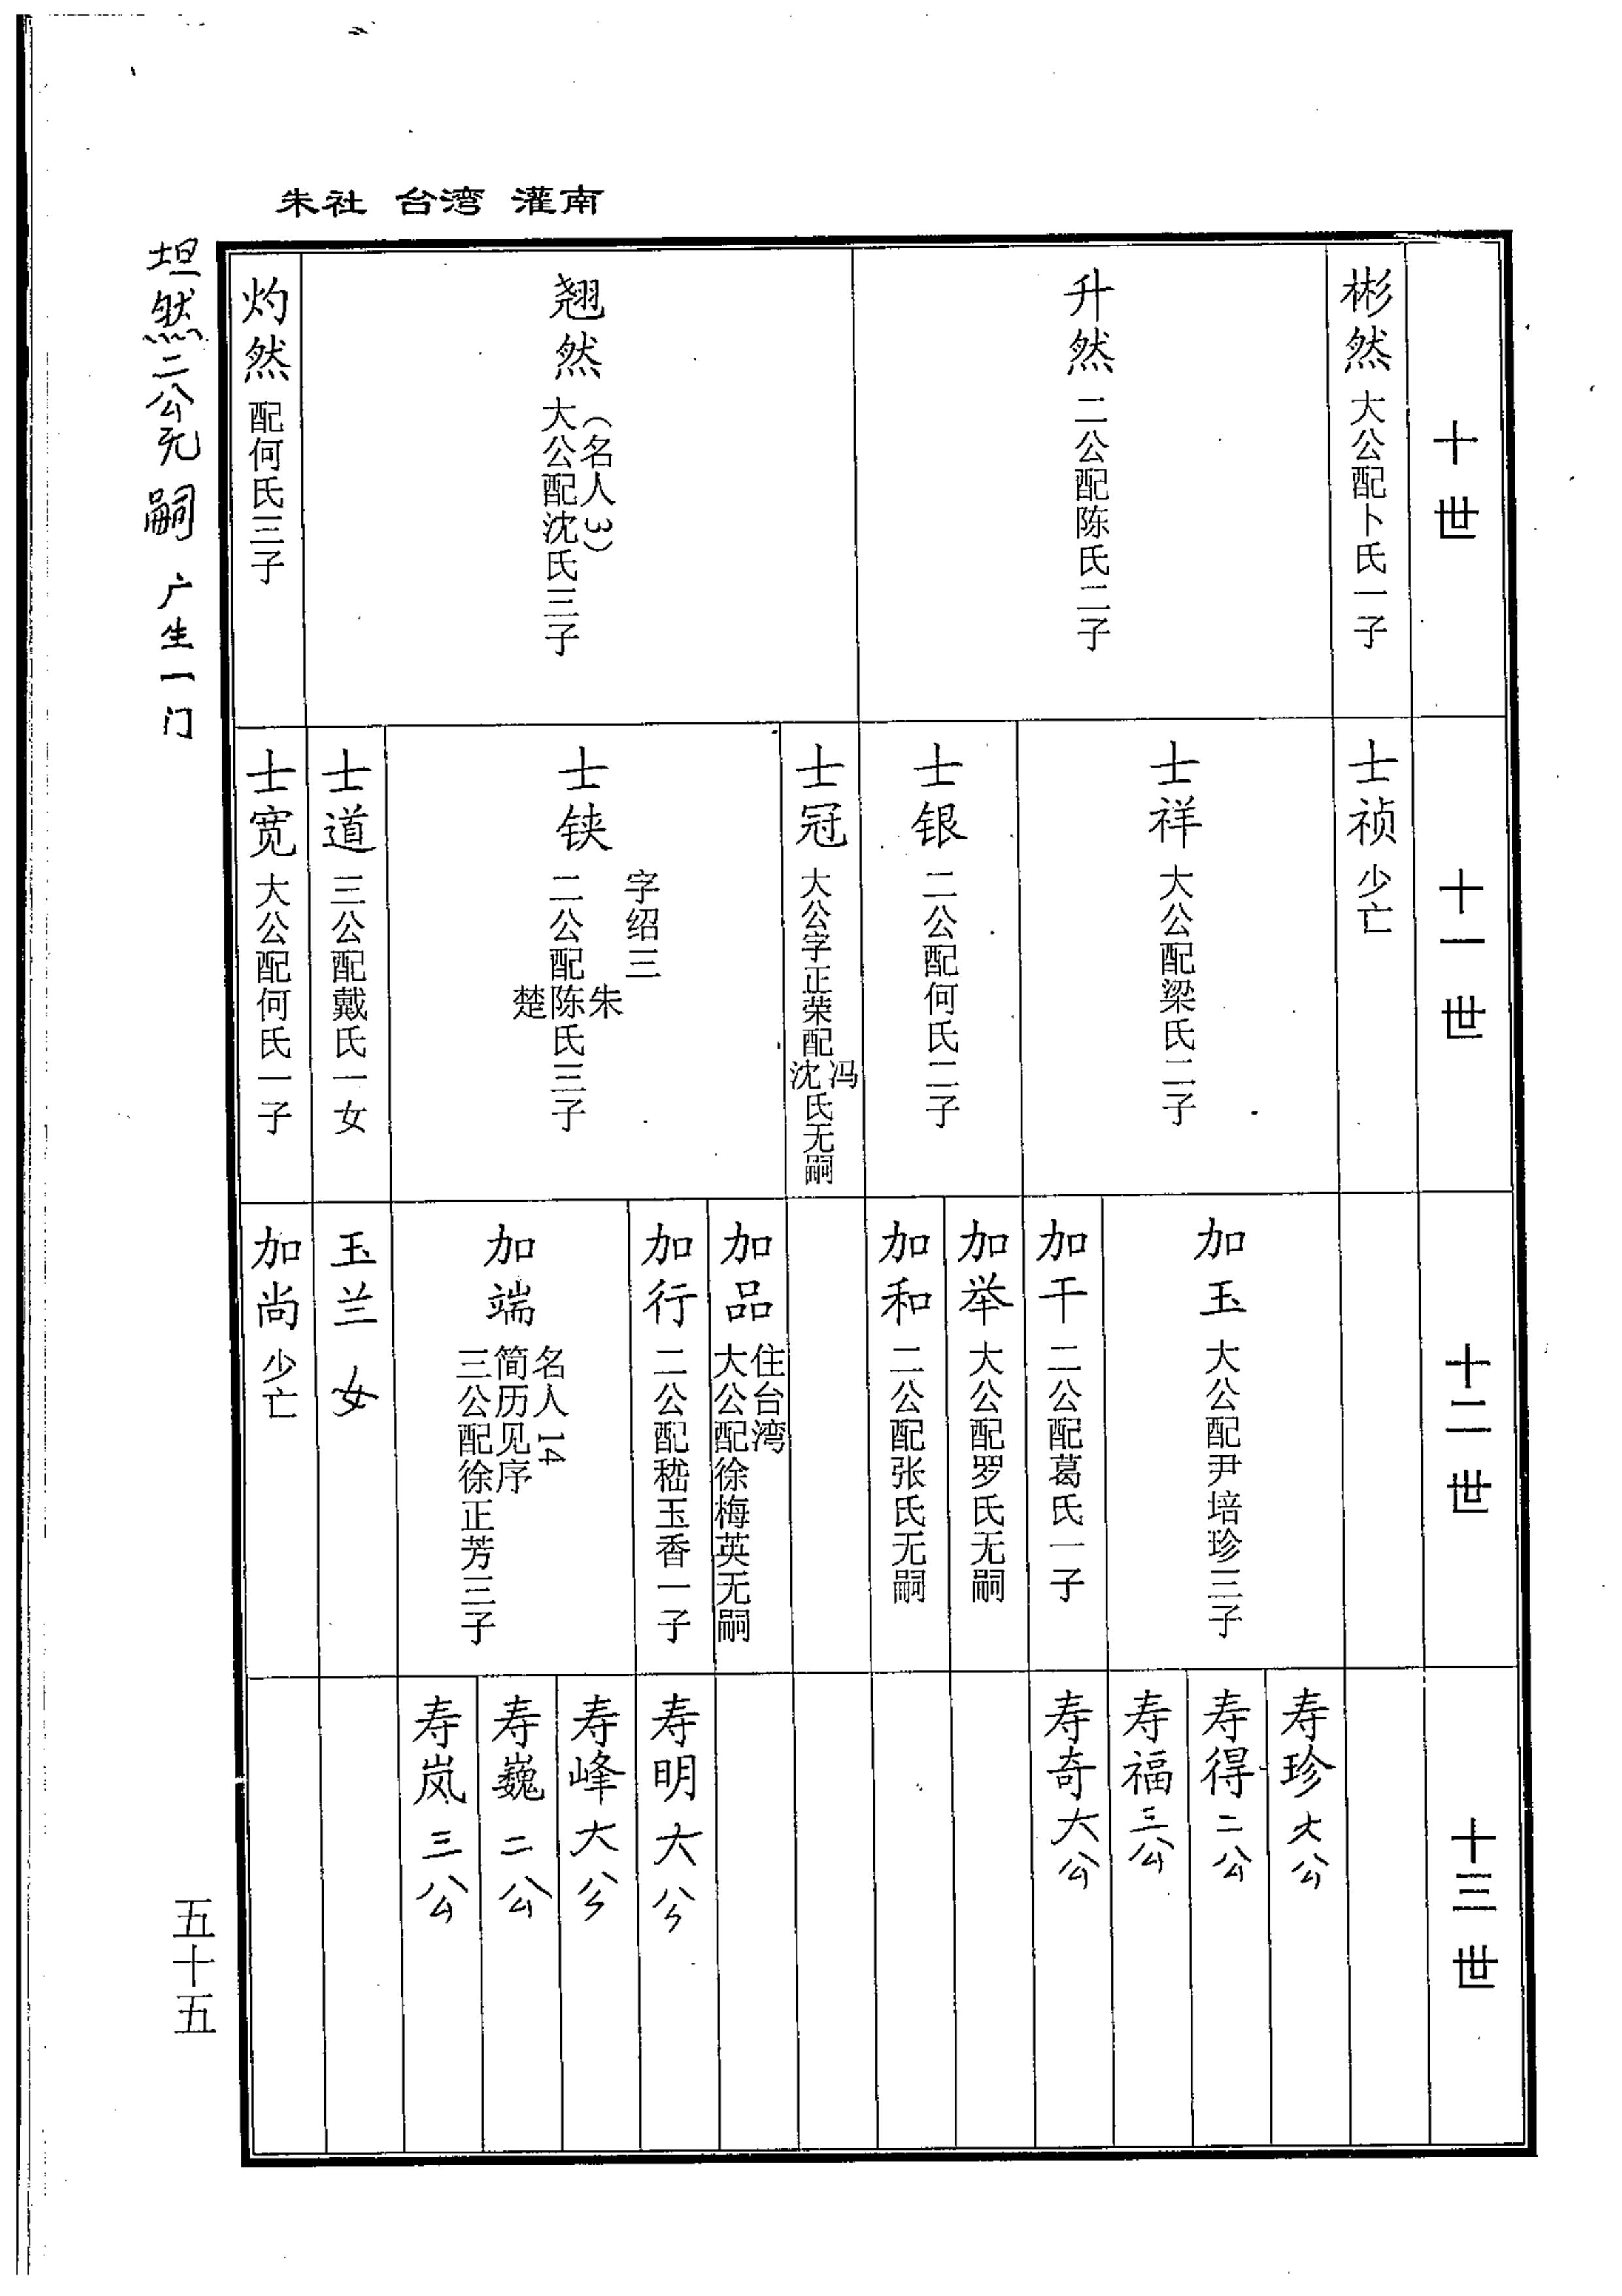 朱社 台湾 灌南
十世
彬然 大公配卜氏一子
升然 二公配陈氏二子
翘然 (名人3)
大公配沈氏三子
灼然 配何氏三子
十一世
士祯 少亡
士祥 大公配梁氏二子
士银 二公配何氏二子
士冠 大公字正荣配冯沈氏无嗣
士铗 字绍三
二公配朱陈楚氏三子
士道 三公配戴氏一女
士宽 大公配何氏一子
十二世
加玉 大公配尹培珍三子
加干 二公配葛氏一子
加举 大公配罗氏无嗣
加和 二公配张氏无嗣
加品 住台湾
大公配徐梅英无嗣
加行 二公配嵇玉香一子
加端 名人14
简历见序
三公配徐正芳三子
玉兰 女
加尚 少亡
十三世
寿珍 大公
寿得 二公
寿福 三公
寿奇 大公
寿明 大公
寿峰 大公
寿巍 二公
寿岚 三公
坦然二公无嗣 广生一门
五十五